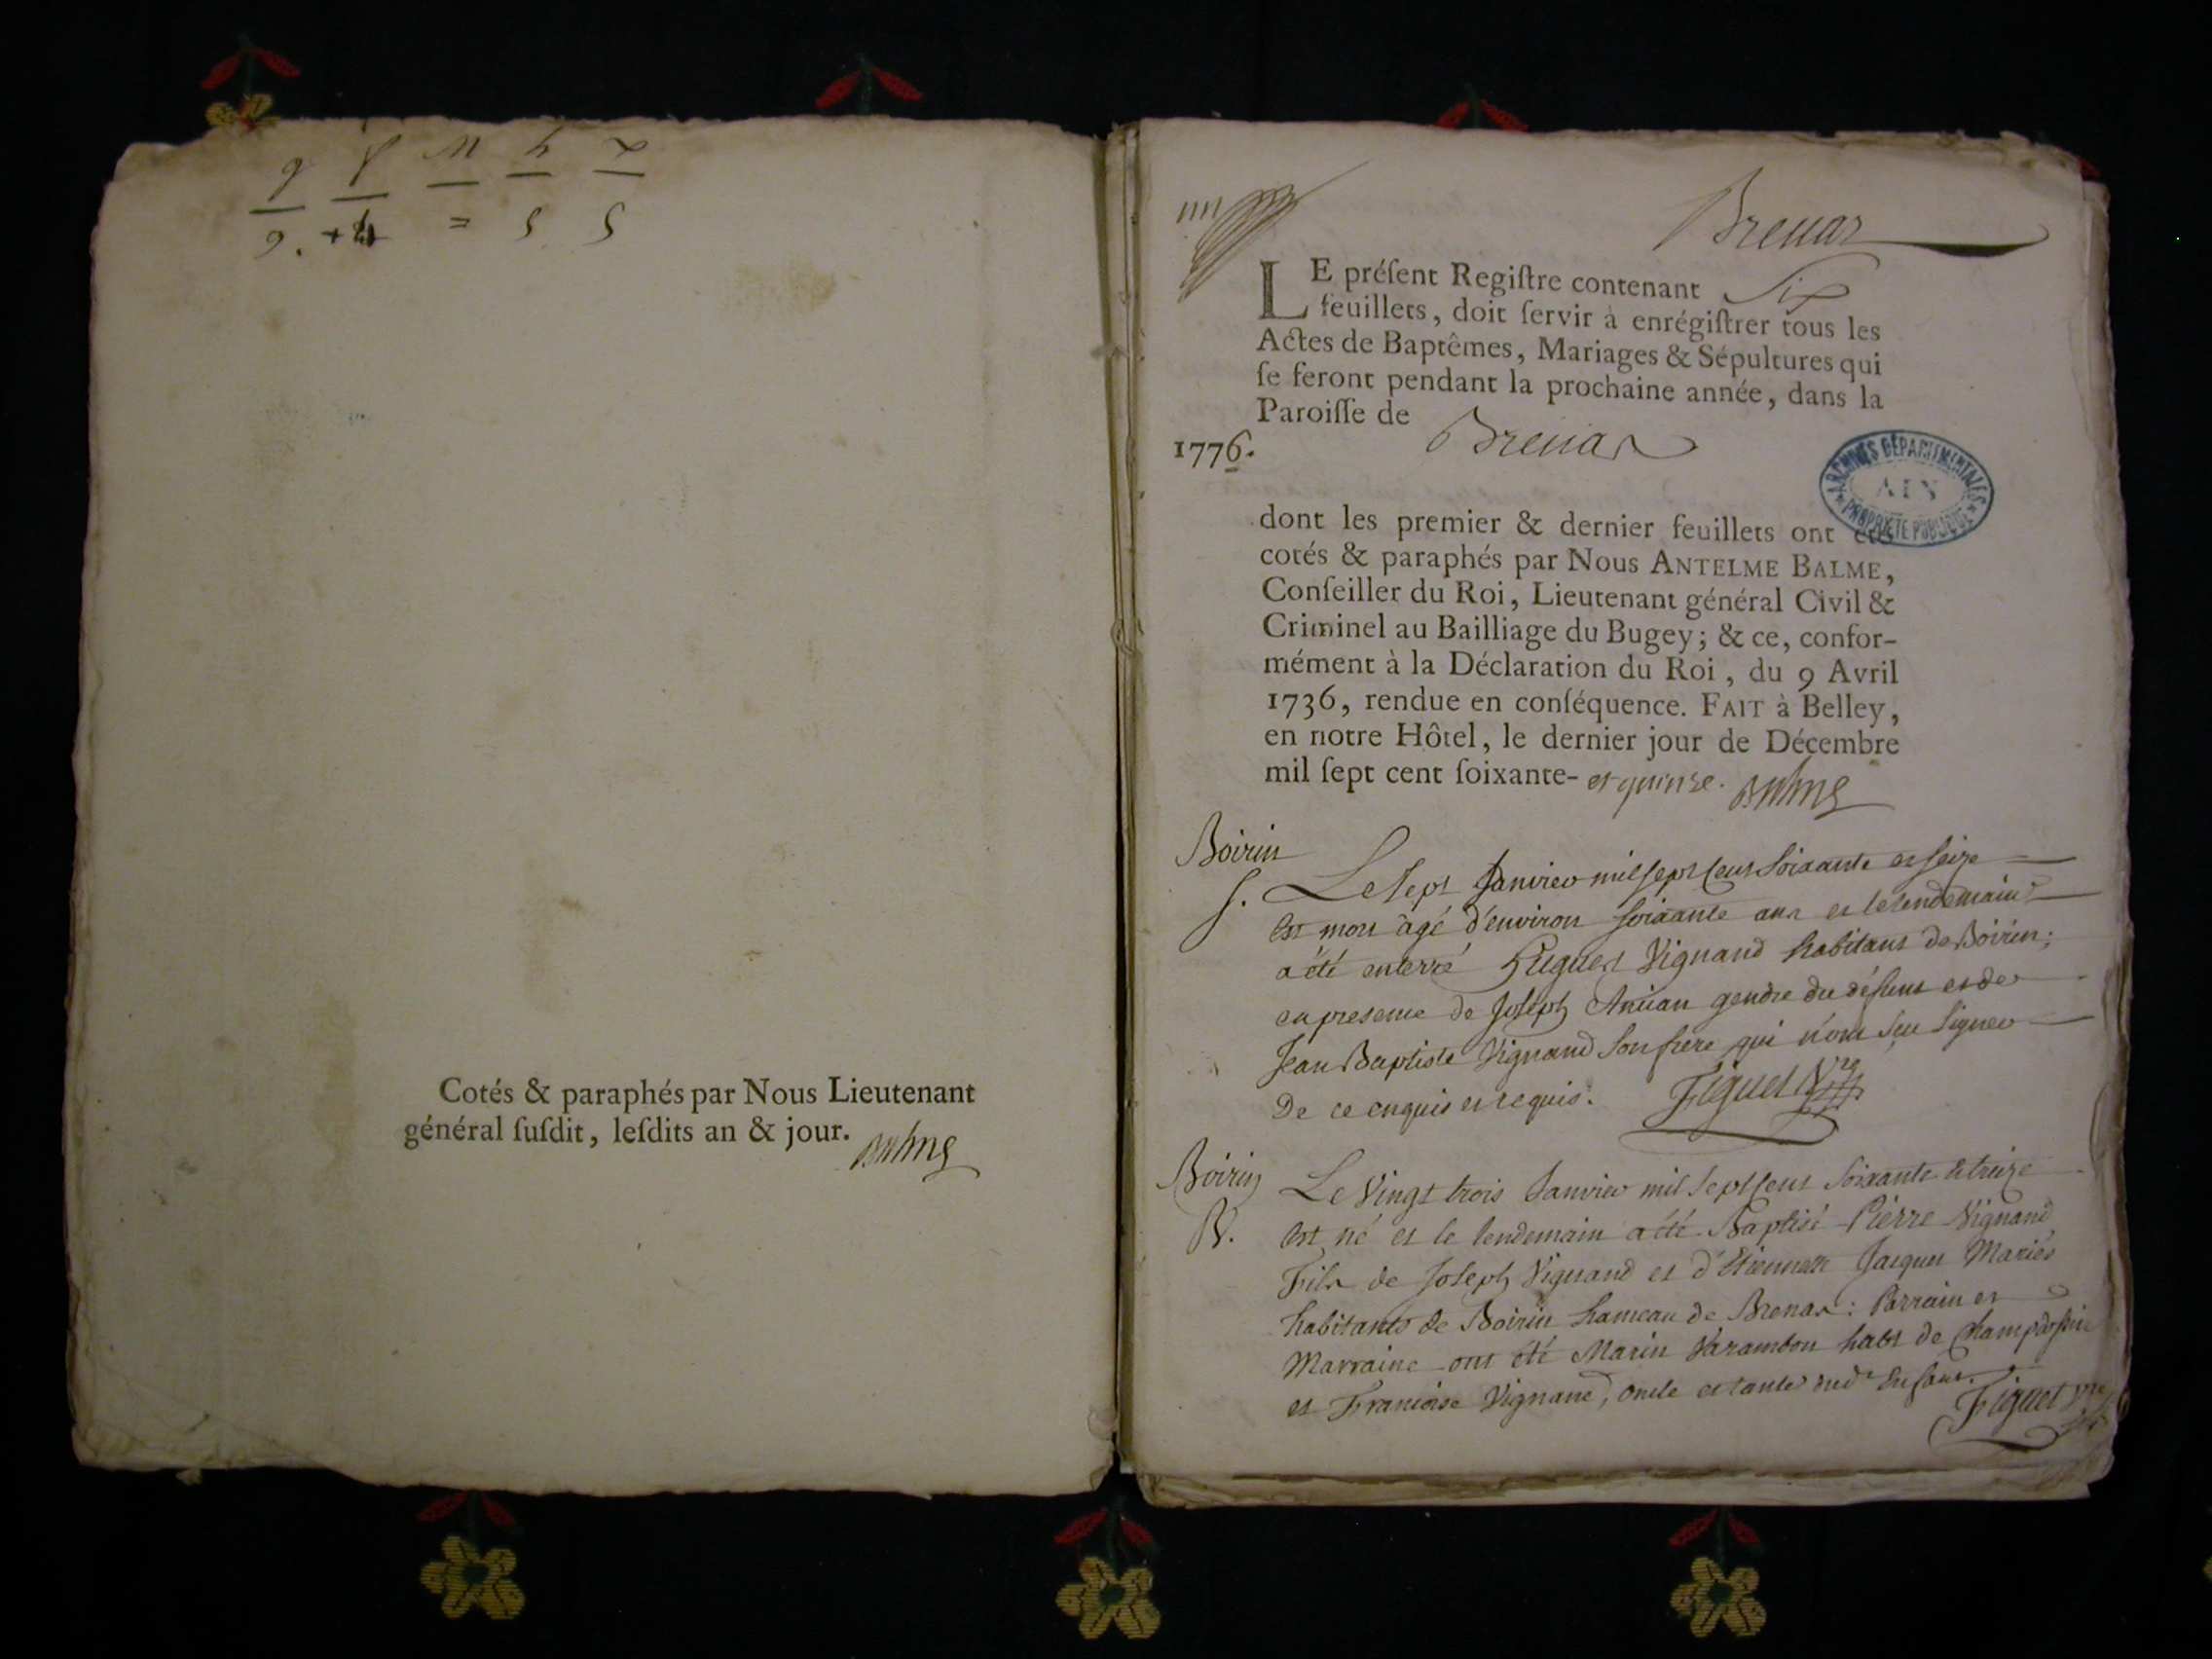 Cotés & paraphés par Nous Lieutenant
général ſuſdit, leſdits an & jour.
Balme
Brenas
LE préſent Regiſtre contenant Six
feuillets, doit ſervir à enrégiſtrer tous les
Actes de Baptêmes, Mariages & Sépultures qui
ſe feront pendant la prochaine année, dans la
Paroiſſe de Brenas
1776.
ARCHIVES DÉPARTEMENTALES
AIN
PROPRIÉTÉ PUBLIQUE
dont les premier & dernier feuillets ont été
cotés & paraphés par Nous ANTELME BALME,
Conſeiller du Roi, Lieutenant général Civil &
Criminel au Bailliage du Bugey; & ce, confor-
mément à la Déclaration du Roi, du 9 Avril
1736, rendue en conſéquence. FAIT à Belley,
en notre Hôtel, le dernier jour de Décembre
mil ſept cent ſoixante- et quinze. Balme
Boirin
S. Le Sept Janvier mil sept cent Soixante et seize
est mort âgé d'environ soixante ans et le lendemain
a été enterré Hugues Vignand habitant de Boirin;
en presence de Joseph gendre du défunt et de
Jean Baptiste Vignand son frère qui n'ont sçu signer
De ce enquis et requis. Figuet
Boirin
B. Le Vingt trois Janvier mil sept cent Soixante et seize
est né et le lendemain a été Baptisé Pierre Vignand
Fils de Joseph Vignand et d'Etiennette Jacquet Mariés
habitants de Boirin hameau de Brenas: Parrain et
Marraine ont été Marin Varambon habt de
et Francoise Vignand, oncle et tante dudt Enfant.
Figuet